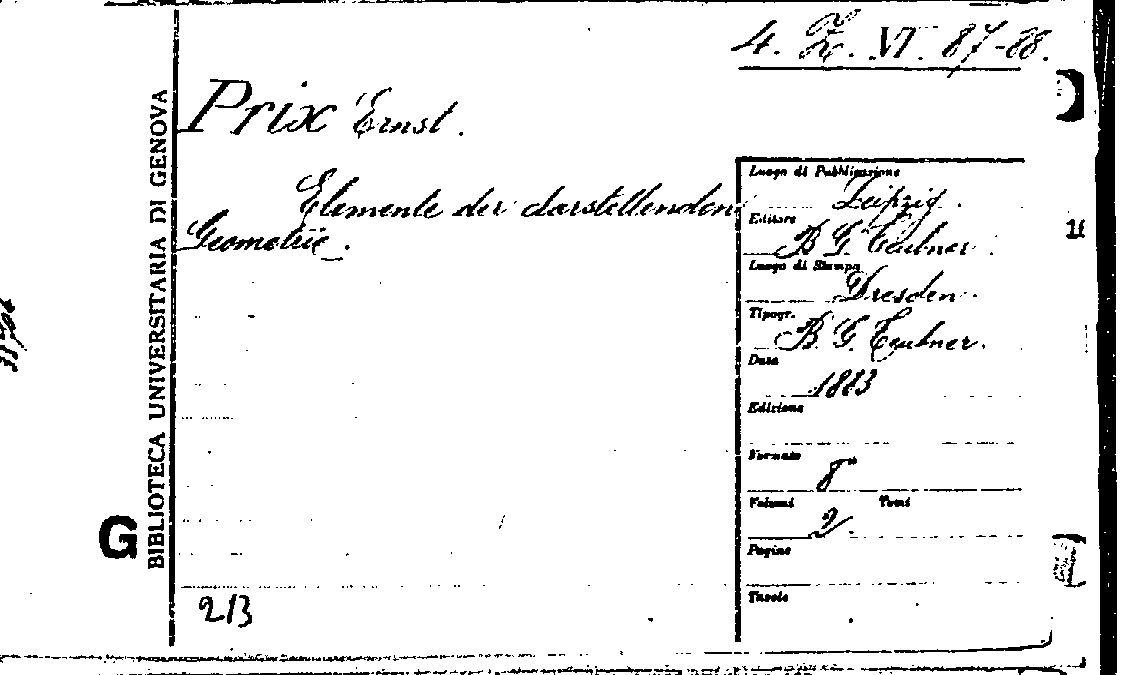 4. Z. VI. 87-88.
Prix Ernst.
Elemente der darstellenden
Geometrie.
BIBLIOTECA UNIVERSITARIA DI GENOVA
G
Luogo di Pubblicazione
Leipzig.
Editore
B. G. Teubner.
Luogo di Stampa
Dresden.
Tipogr.
B. G. Teubner.
Data
1883
Edizione
Formato
8°
Volumi Tomi
2.
Pagine
Tavole
213